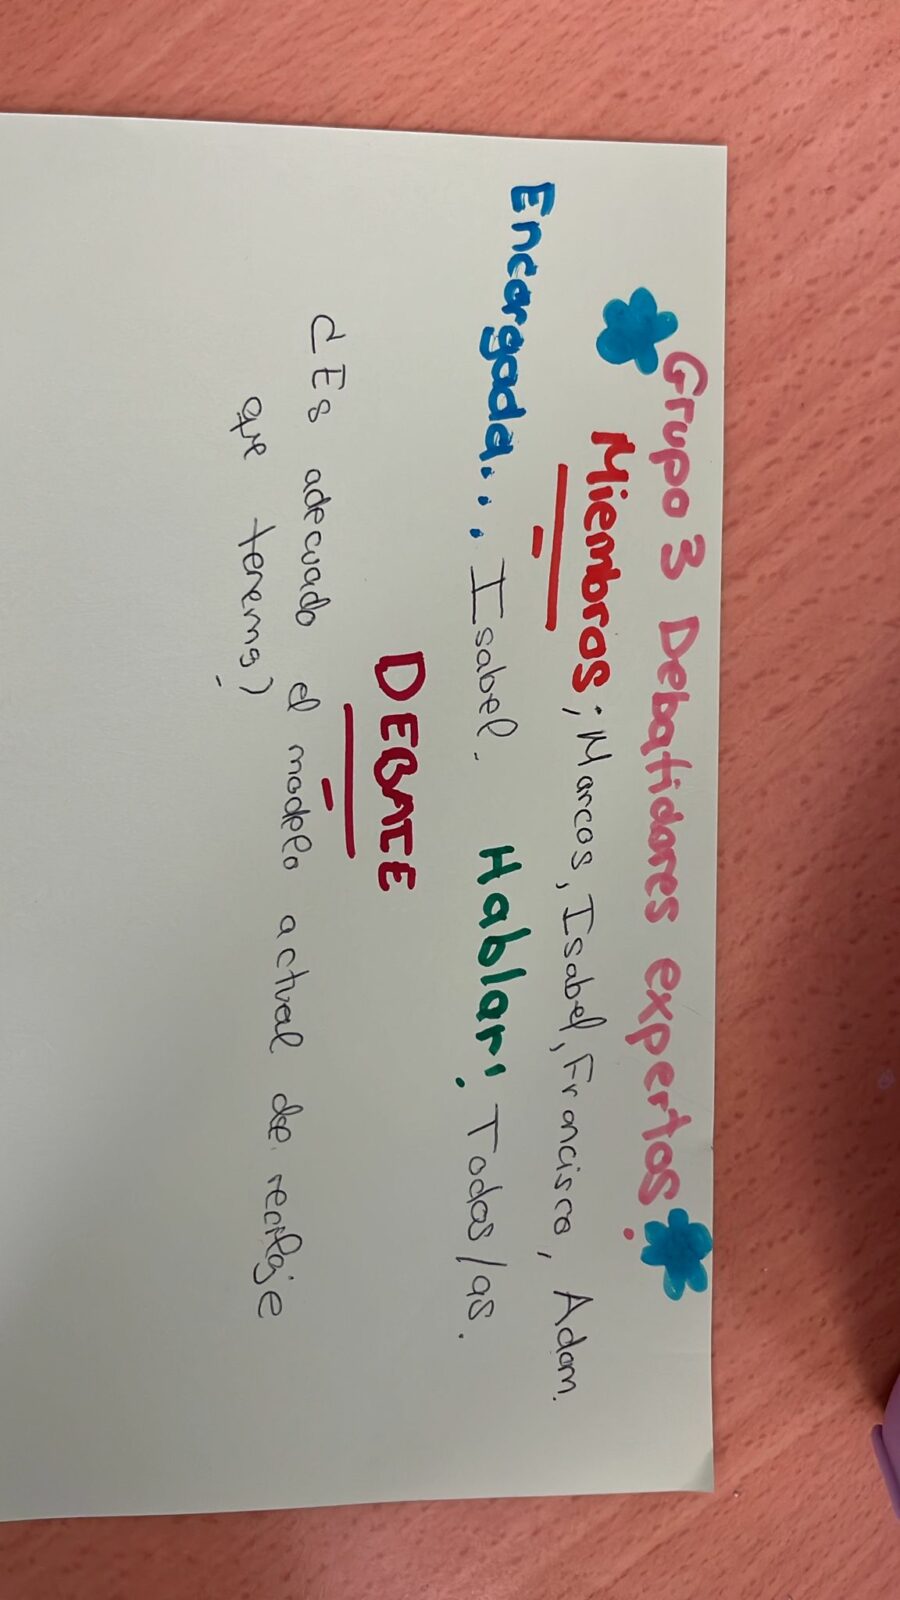 Grupo 3 Debatidores expertos.
Miembros; Marcos, Isabel, Francisco, Adam.
Encargada... Isabel. Hablar: Todos/as.
DEBATE
¿Es adecuado el modelo actual de reciclaje
que tenems?